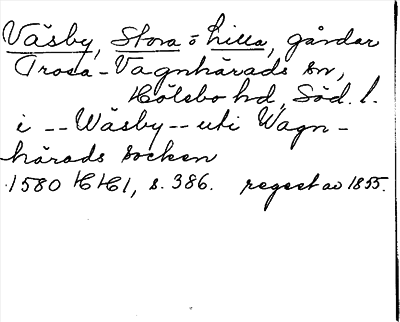 Väsby, Stora o Lilla, gårdar
Trosa-Vagnhärads sn,
Hölebo hd, Söd. l.
i -- Wäsby -- uti Wagn-
härads socken
1580 HH1, s. 386. regest av 1855.